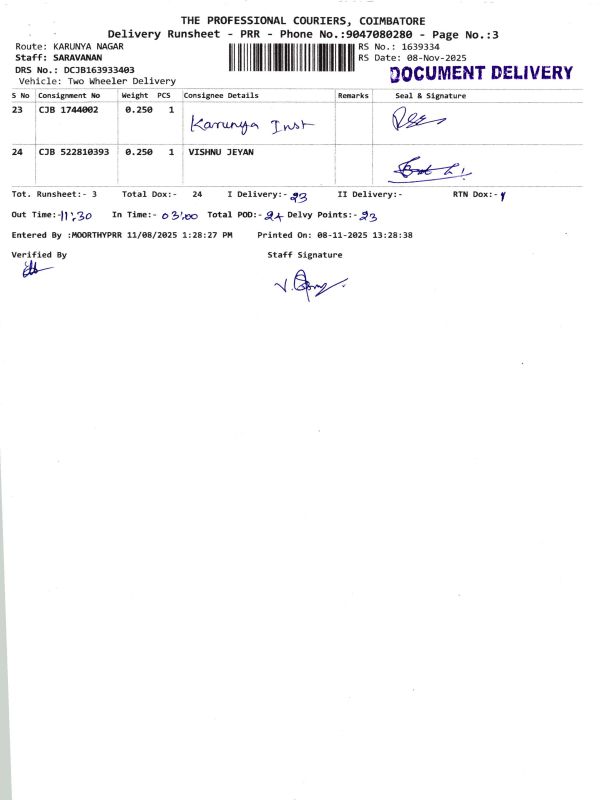 THE PROFESSIONAL COURIERS, COIMBATORE
Delivery Runsheet - PRR - Phone No.:9047080280 - Page No.:3
Route: KARUNYA NAGAR RS No.: 1639334
Staff: SARAVANAN RS Date: 08-Nov-2025
DRS No.: DCJB163933403 DOCUMENT DELIVERY
Vehicle: Two Wheeler Delivery
S No Consignment No Weight PCS Consignee Details Remarks Seal & Signature
23 CJB 1744002 0.250 1 Karunya Inst
24 CJB 522810393 0.250 1 VISHNU JEYAN
Tot. Runsheet:- 3 Total Dox:- 24 I Delivery:- 23 II Delivery:- RTN Dox:-
Out Time:- 11:30 In Time:- 03:00 Total POD:- 24 Delvy Points:- 23
Entered By :MOORTHYPRR 11/08/2025 1:28:27 PM Printed On: 08-11-2025 13:28:38
Verified By Staff Signature